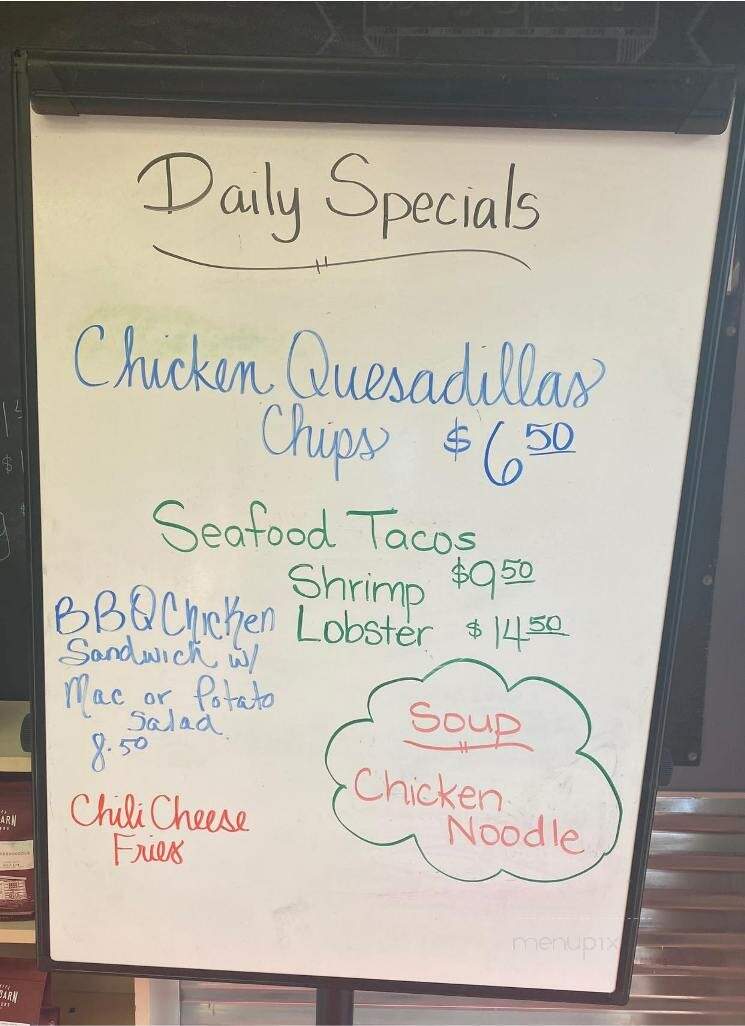 Daily Specials
Chicken Quesadillas
Chips $6.50
Seafood Tacos
Shrimp $9.50
Lobster $14.50
BBQ Chicken
Sandwich w/
Mac or Potato
Salad
8.50
Chili Cheese
Fries
Soup
Chicken
Noodle
menupix
ARN
ARN